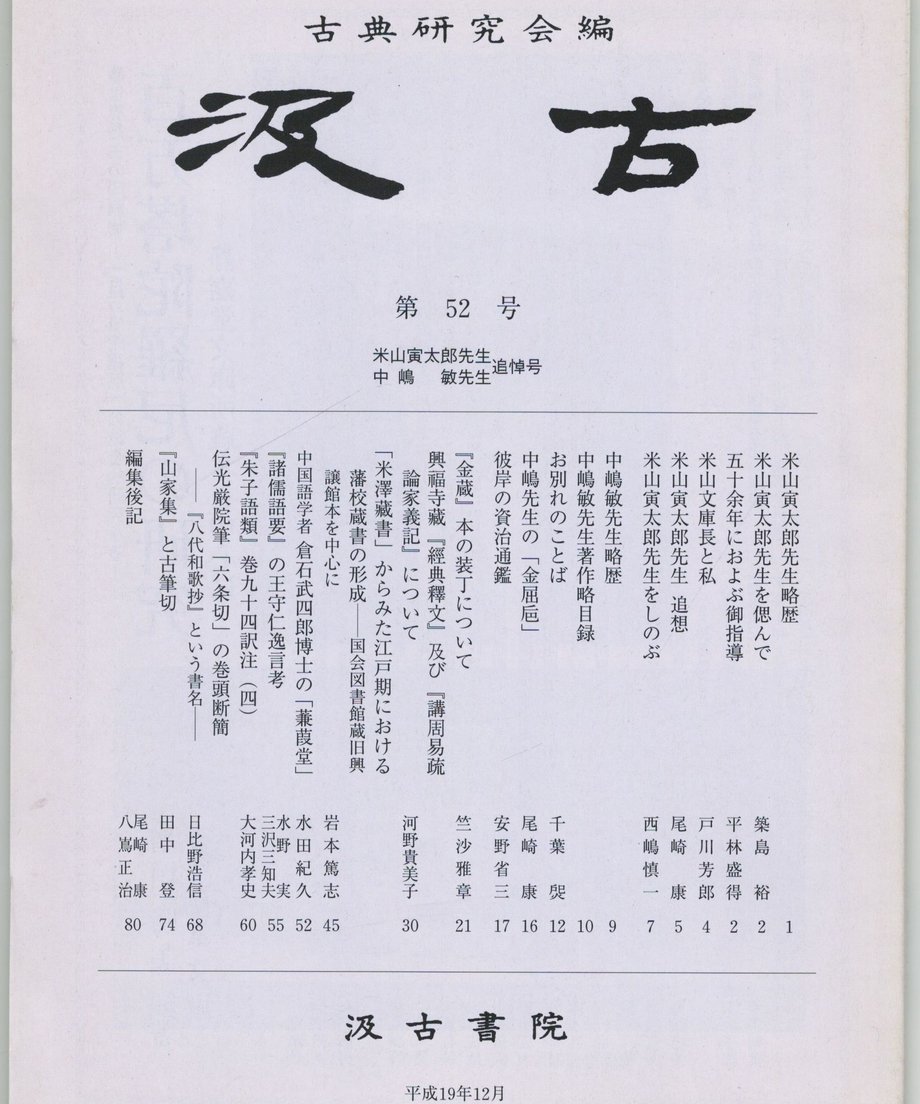 古典研究会編
汲古
第 52 号
米山寅太郎先生
中嶋 敏先生
追悼号
米山寅太郎先生略歴 1
米山寅太郎先生を偲んで 築島 裕 2
五十余年におよぶ御指導 平林盛得 2
米山文庫長と私 戸川芳郎 4
米山寅太郎先生 追想 尾崎 康 5
米山寅太郎先生をしのぶ 西嶋慎一 7
中嶋敏先生略歴 9
中嶋敏先生著作略目録 10
お別れのことば 千葉 㷼 12
中嶋先生の「金屈巵」 尾崎 康 16
彼岸の資治通鑑 安野省三 17
『金蔵』本の装丁について 竺沙雅章 21
興福寺藏『經典釋文』及び『講周易疏
論家義記』について 河野貴美子 30
「米澤藏書」からみた江戸期における
藩校蔵書の形成――国会図書館蔵旧興
譲館本を中心に 岩本篤志 45
中国語学者 倉石武四郎博士の「蒹葭堂」 水田紀久 52
『諸儒語要』の王守仁逸言考 水野 実 三沢三知夫 55
『朱子語類』巻九十四訳注（四） 大河内孝史 60
伝光厳院筆「六条切」の巻頭断簡
――『八代和歌抄』という書名―― 日比野浩信 68
『山家集』と古筆切 田中 登 74
編集後記 尾崎 康 八嶌正治 80
汲古書院
平成19年12月